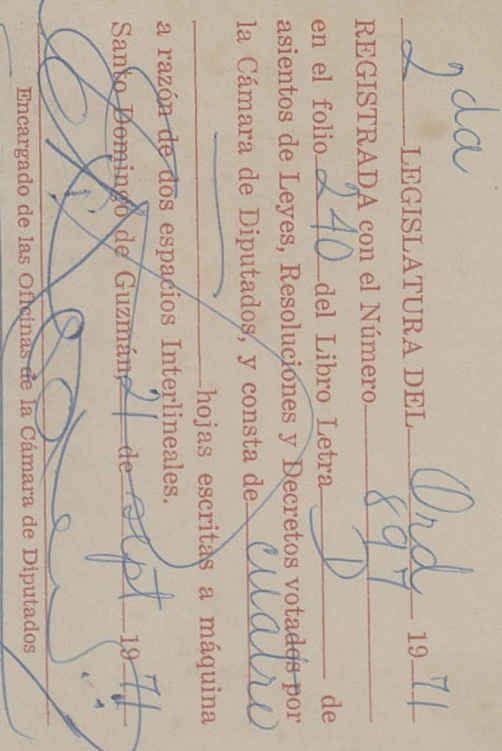 2da LEGISLATURA DEL Ord 1971
REGISTRADA con el Número 897
en el folio 240 del Libro Letra D de
asientos de Leyes, Resoluciones y Decretos votados por
la Cámara de Diputados, y consta de cuatro
hojas escritas a máquina
a razón de dos espacios Interlineales.
Santo Domingo de Guzmán, 21 de sept 1971
Encargado de las Oficinas de la Cámara de Diputados